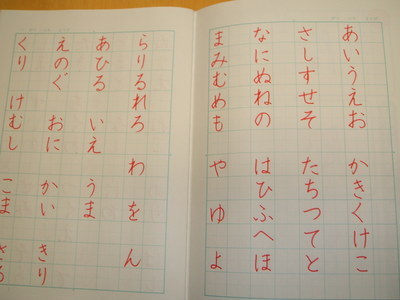 あいうえお かきくけこ
さしすせそ たちつてと
なにぬねの はひふへほ
まみむめも や ゆ よ
らりるれろ わ を ん
あひる いえ うま
えのぐ おに かい きり
くり けむし こま さる